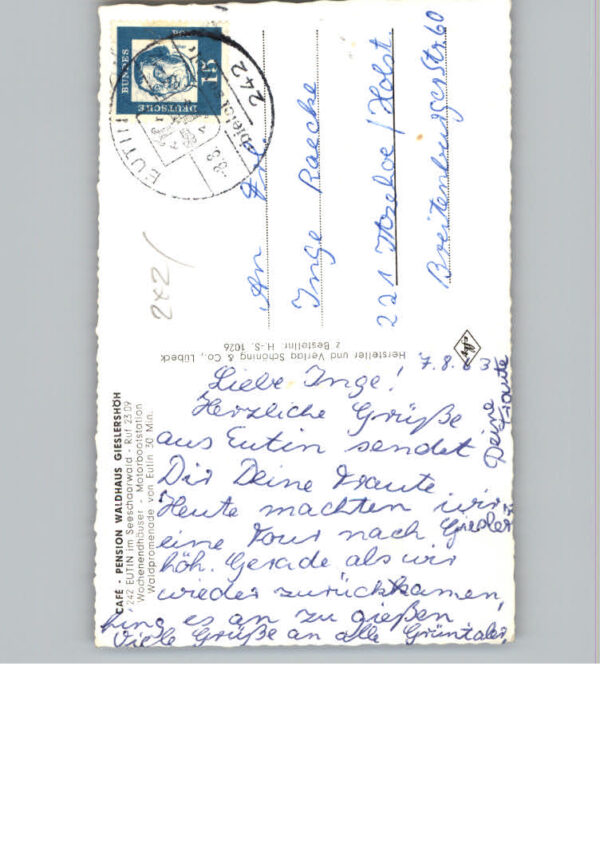 CAFÉ - PENSION WALDHAUS GIESLERSHÖH
242 EUTIN im Seescharwald - Ruf 23 09
Wochenendhäuser - Motorbootstation
Waldpromenade von Eutin 30 Min.
7.8.63
Liebe Inge!
Herzliche Grüße
aus Eutin sendet
Dir Deine Traute
Heute machten wir
eine Tour nach Giesler
höh. Gerade als wir
wieder zurückkamen,
fing es an zu gießen
Viele Grüße an alle Grüntaler,
Deine
Traute
Hersteller und Verlag Schöning & Co., Lübeck
z Bestellnr. H.-S. 1026
242/
DEUTSCHE
BUNDES
POST
15
242
EUTIN
-8.8.
An Frl.
Inge Raecke
221 Itzehoe/Holst.
Breitenburgerstr. 60